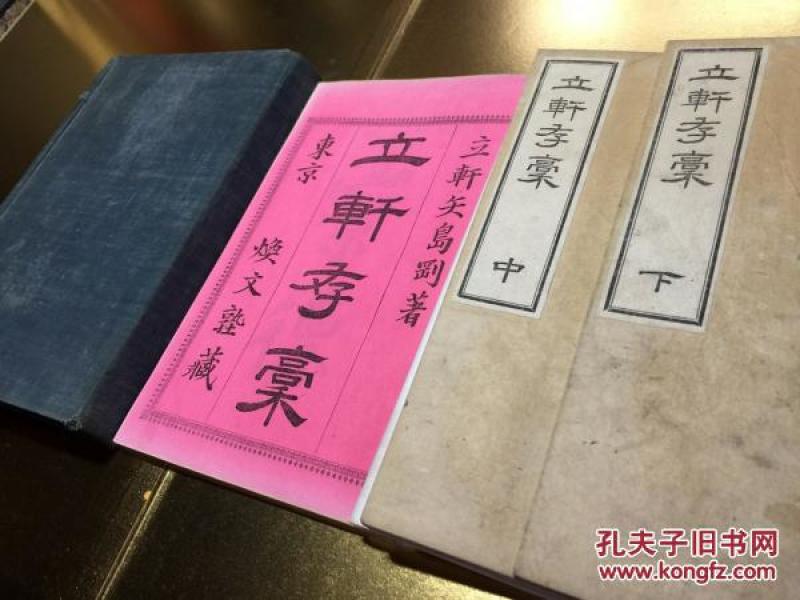 立軒矢島剛著
立軒存稾
東京 煥文塾藏
立軒存稾 中
立軒存稾 下
孔夫子旧书网
www.kongfz.com